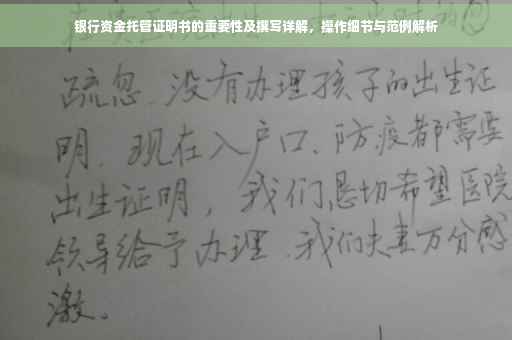 银行资金托管证明书的重要性及撰写详解，操作细节与范例解析
疏忽、没有办理孩子的出生证
明、现在入户口、防疫都需要
出生证明，我们恳切希望医院
领导给予办理、我们夫妻万分感
激。